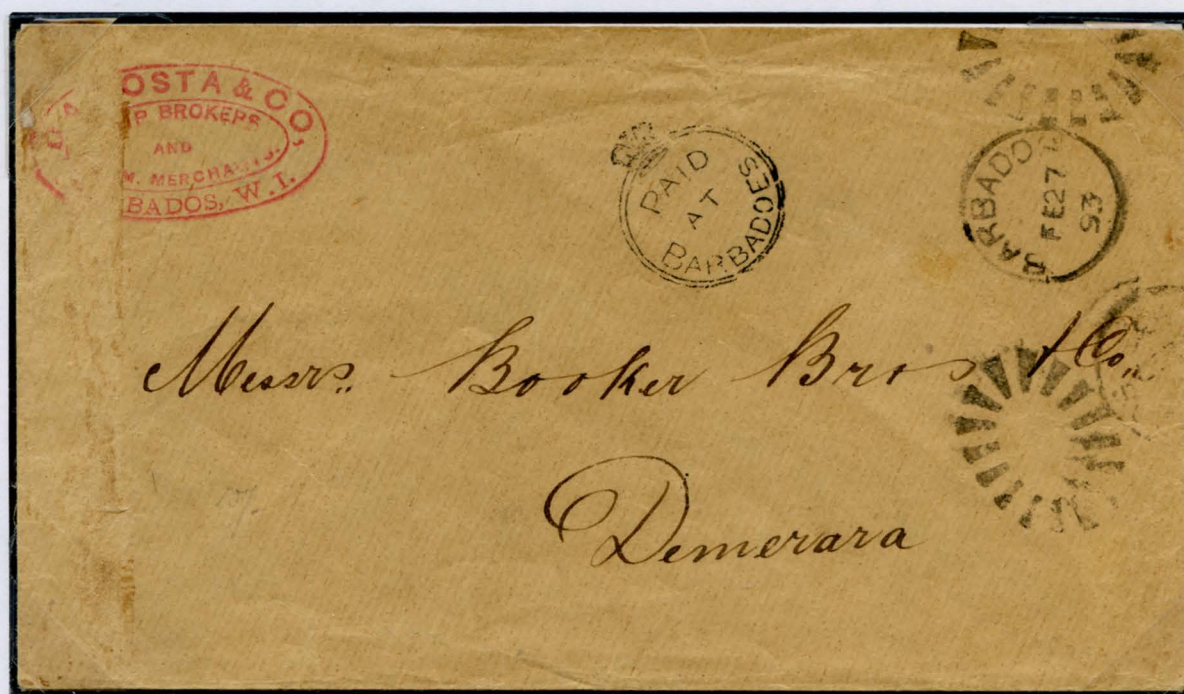 DA COSTA & CO,
SHIP BROKERS
AND
COM. MERCHANTS.
BARBADOS, W.I.
PAID
AT
BARBADOES
BARBADOS
FE 27
93
Messrs. Booker Bros & Co.,
Demerara